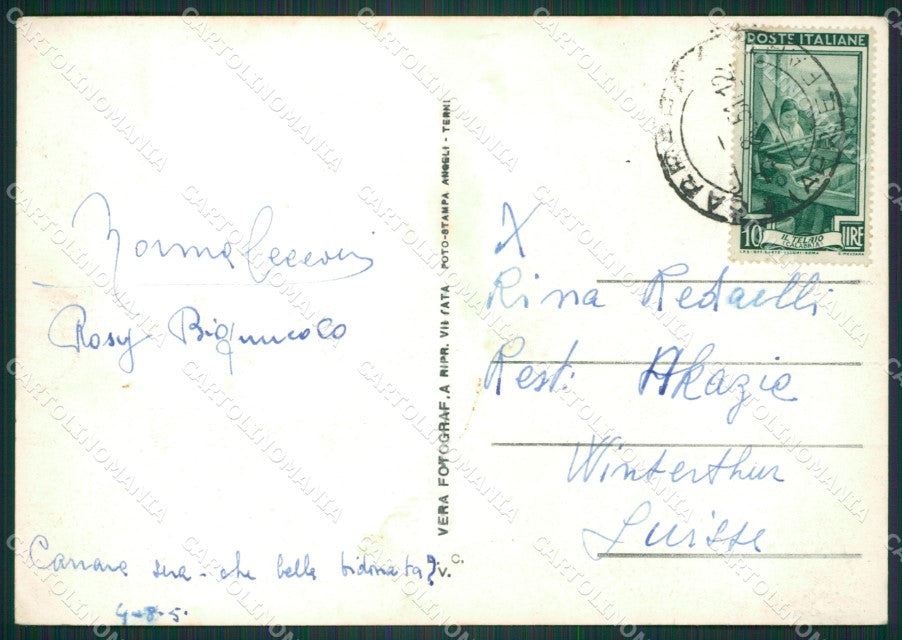 POSTE ITALIANE
10 LIRE
IL TELAIO
CALABRIA
Norma
Rosy
Carrara sera - che bella bidonata?
4-8-5
VERA FOTOGRAF.A RIPR. VIETATA FOTO-STAMPA ANGELI - TERNI
V. C.
X
Rina Redaelli
Rest: Akazie
Winterthur
Suisse
CARTOLINOMANIA